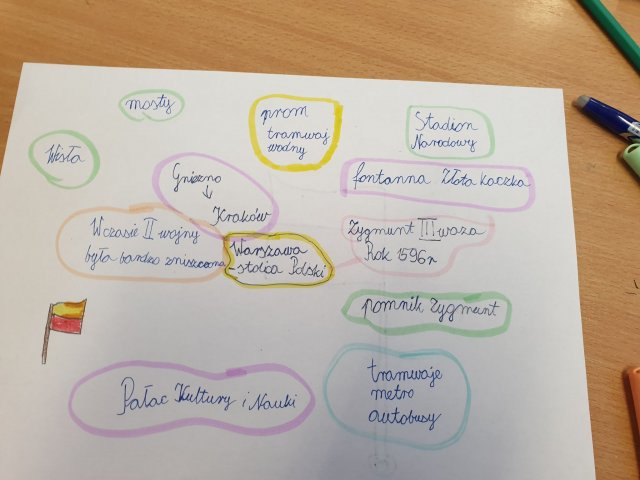 mosty
prom
tramwaj
wodny
Stadion
Narodowy
Wisła
Gniezno
↓
Kraków
fontanna Złota kaczka
W czasie II wojny
była bardzo zniszczona
Warszawa
- stolica Polski
Zygmunt III waza
Rok 1596r
pomnik Zygmunt
Pałac Kultury i Nauki
tramwaje
metro
autobusy